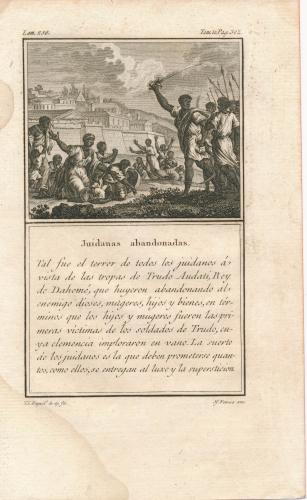 Lam. 238. Tom. II. Pag. 512.
Juidanas abandonadas.
Tal fue el terror de todos los juidanos á
vista de las tropas de Trudo Audati, Rey
de Dahomé, que huyeron abandonando al
enemigo dioses, mugeres, hijos y bienes, en tér-
minos que los hijos y mugeres fueron las pri-
meras victimas de los soldados de Trudo, cu-
ya clemencia imploraron en vano. La suerte
de los juidanos es la que deben prometerse quan-
tos, como ellos, se entregan al luxo y la supersticion